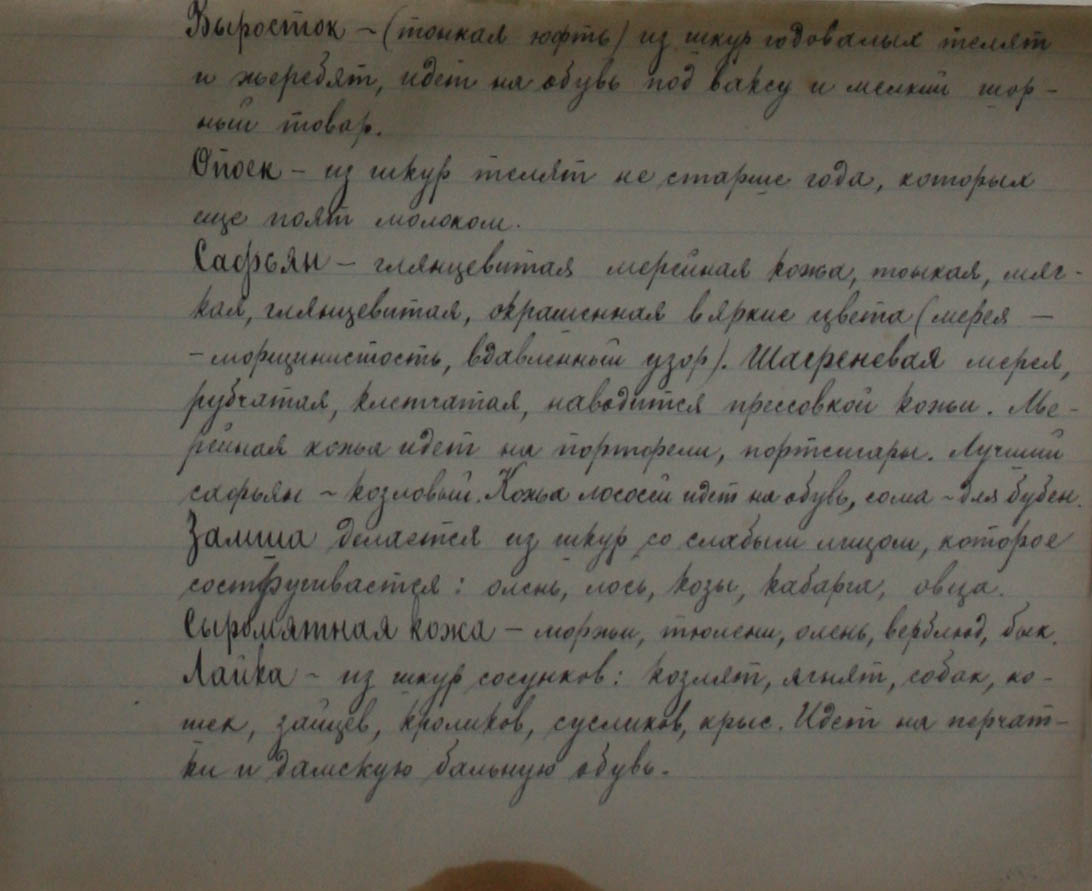 Выросток – (тонкая юфть) из шкур годовалых телят
и жеребят, идет на обувь под ваксу и мелкий шор-
ный товар.
Опоек – из шкур телят не старше года, которых
еще поят молоком.
Сафьян – глянцевитая мерейная кожа, тонкая, мяг-
кая, глянцевитая, окрашенная в яркие цвета (мерея –
– морщинистость, вдавленный узор). Шагреневая мерея,
рубчатая, клетчатая, наводится прессовкой кожи. Ме-
рейная кожа идет на портфели, портсигары. Лучший
сафьян – козловый. Кожа лососей идет на обувь, сома – для бубен.
Замша делается из шкур со слабым лицом, которое
состругивается: олень, лось, козы, кабарга, овца.
Сыромятная кожа – моржи, тюлени, олень, верблюд, бык.
Лайка – из шкур сосунков: козлят, ягнят, собак, ко-
шек, зайцев, кроликов, сусликов, крыс. Идет на перчат-
ки и дамскую бальную обувь.